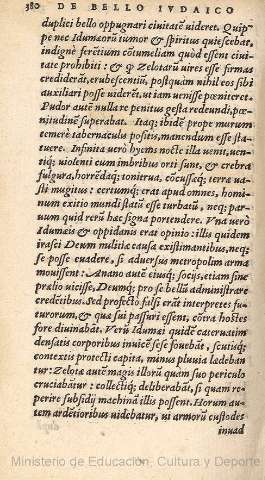 380 DE BELLO IVDAICO
duplici bello oppugnari ciuitatē uideret. Quip-
pe nec Idumæorū tumor & spiritus quiescebat,
indignè ferētium cōtumeliam quòd essent ciui-
tate prohibiti: & ꝙ Zelotarū uires esse firmas
crediderāt, erubescentiū, postquàm nihil eos sibi
auxiliari posse uiderēt, ut iam uenisse pœniteret.
Pudor autē nulla re penitus gesta redeundi, pœ-
nitudinē superabat. Itaq; ibidē prope murum
temerè tabernaculis positis, manendum esse sta-
tuere. Infinita uerò hyems nocte illa uenit, uen-
tiq; uiolenti cum imbribus orti sunt, & crebra
fulgura, horrēdaq; tonitrua, cōcussæq; terræ ua-
sti mugitus: certumq; erat apud omnes, homi-
num exitio mundi statū esse turbatū, neq; par-
uum quid rerū hæc signa portendere. Vna uerò
Idumæis & oppidanis erat opinio: illis quidem
irasci Deum militiæ causa existimantibus, neq;
se posse euadere, si aduersus metropolim arma
mouissent: Anano autē eiusq; socijs, etiam sine
prælio uicisse, Deumq; pro se bellū administrare
credētibus. Sed profectò falsi erāt interpretes fu-
turorum, & quæ sui passuri essent, cōtra hostes
fore diuinabāt. Verū Idumæi quidē cateruatim
densatis corporibus inuicē sese fouebāt, scutisq;
contextis protecti capita, minus pluuia lædeban
tur: Zelotæ autē magis illorū quàm suo periculo
cruciabātur: collectiq; deliberabāt, si quam re-
perire subsidij machinā illis possent. Horum au-
tem ardētioribus uidebatur, ut armorū custodes
inuad
Ministerio de Educación, Cultura y Deporte